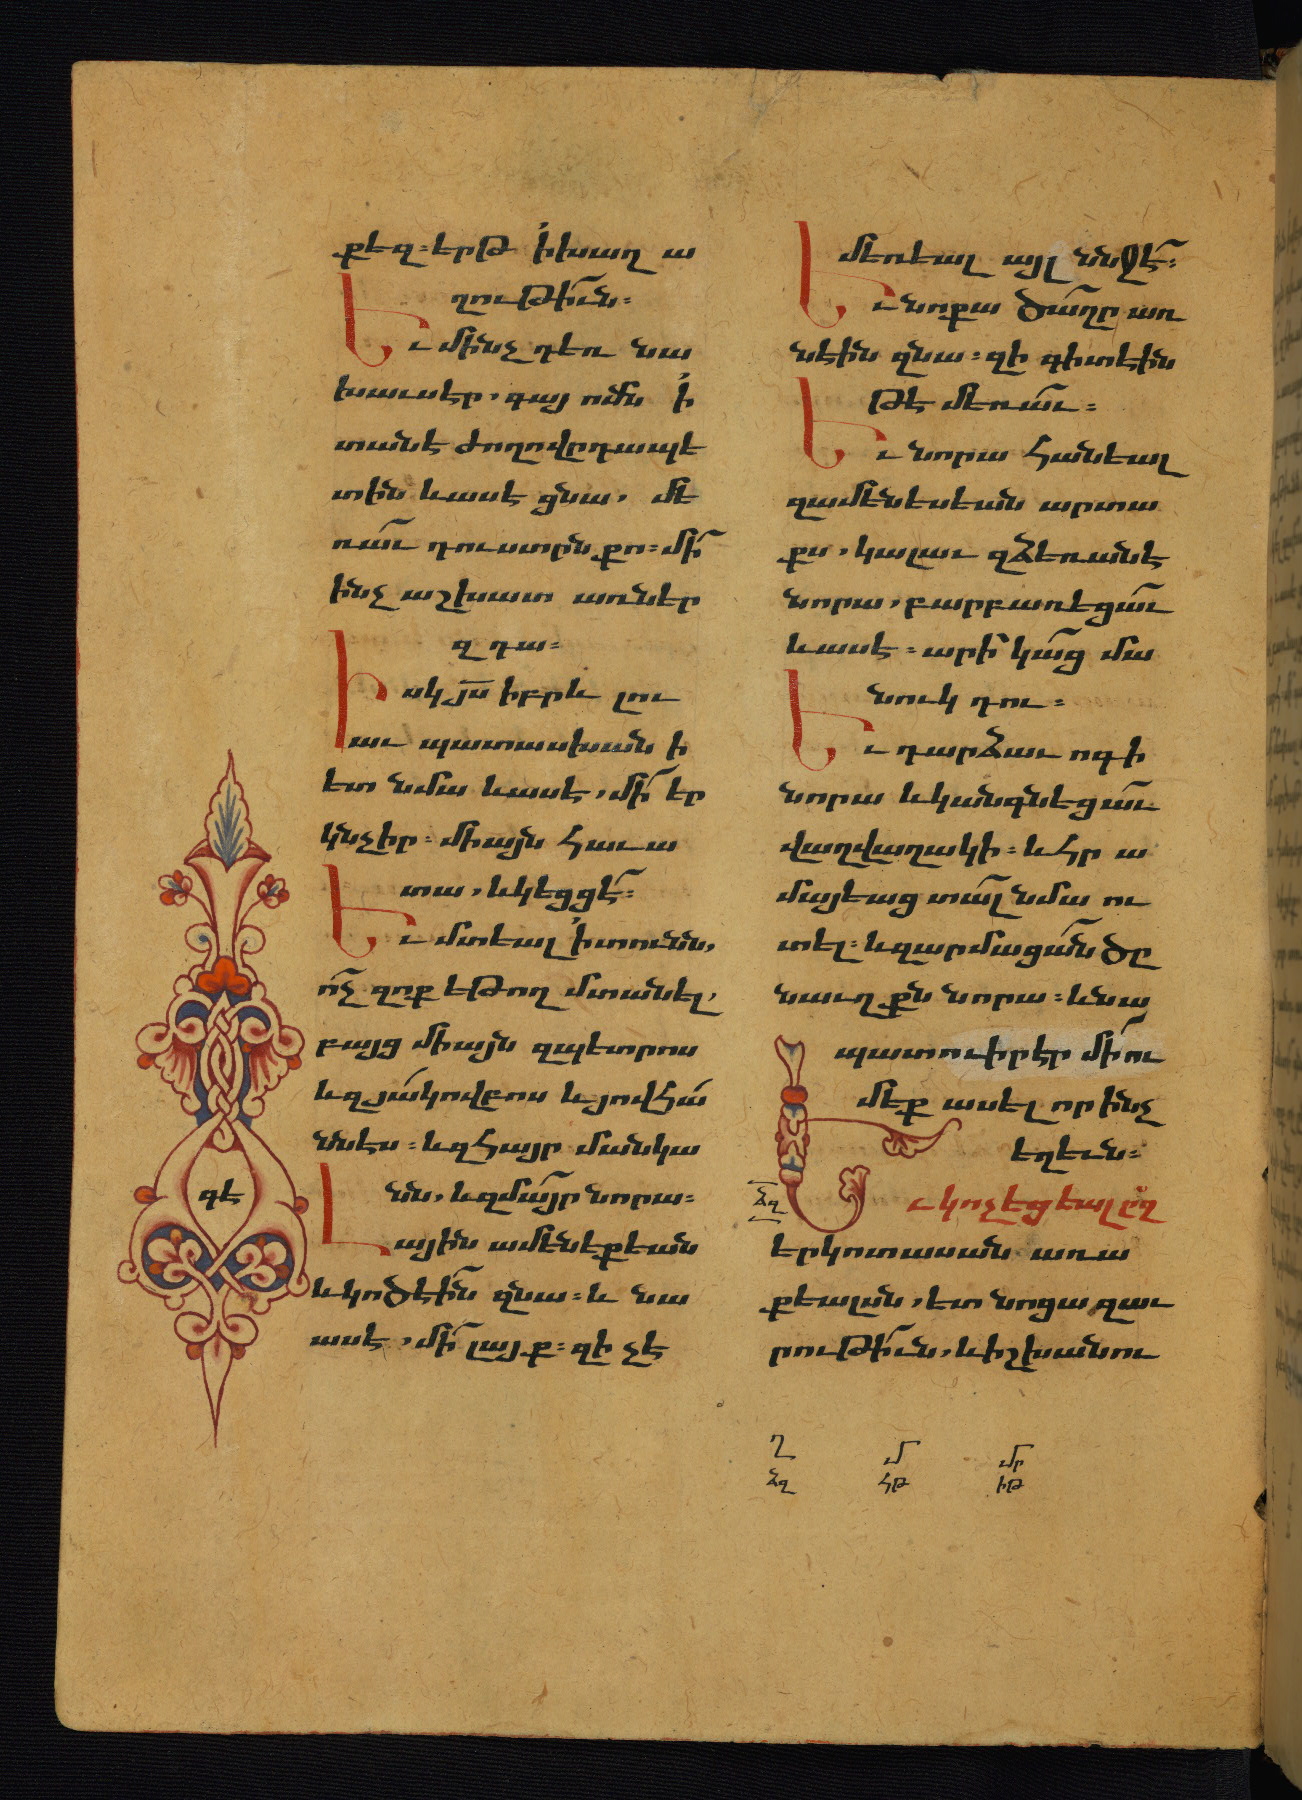 քեզ. երթ ՛ի խաղ ա
ղութի՛ւն։
Եւ մինչ դեռ նա
խաւսէր, գայ ոմն ՛ի
տանէ ժողովըդապե
տին և ասէ ցնա, մե
ռաւ դուստրն քո. մի՛
ինչ աշխատ առներ
զդա։
Իսկ յս իբրև լու
աւ պատասխանի
ետ նմա և ասէ, մի՛ եր
կնչիր. միայն հաւա
տա, և կեցցէ՛։
Եւ մտեալ ՛ի տունն,
ո՛չ զոք եթող մտանել,
բայց միայն զպետրոս
և զյակովբոս և յովհա՛
ննէս. և զհայր մանկա
նն, և զմայր նորա։
Լային ամենեքեան
և կոծէին զնա. և նա
ասէ, մի՛ լայք. զի չէ
գե
մեռեալ այլ ննջէ՛։
Եւ նոքա ծաղր առ
նէին զնա. զի գիտէին
թէ մեռաւ։
Եւ նորա հանեալ
զամենեսեան արտա
քս, կալաւ զձեռանէ
նորա, բարբառեցաւ
և ասէ. արի՛ կաց մա
նուկ դու։
Եւ դարձաւ ոգի
նորա և կանգնեցաւ
վաղվաղակի. և հր ա
մայեաց տալ նմա ու
տել. և զարմացան ծը
նաւղքն նորա. և նա
պատուիրէր մի՛ ու
մեք ասել որ ինչ
եղեւն։
ձզ
Եւ կոչեցեալ ըզ
երկոտասան առա
քեալսն, ետ նոցա զաւ
րութի՛ւն, և իշխանու
ղ մ մր
ձզ հթ իթ